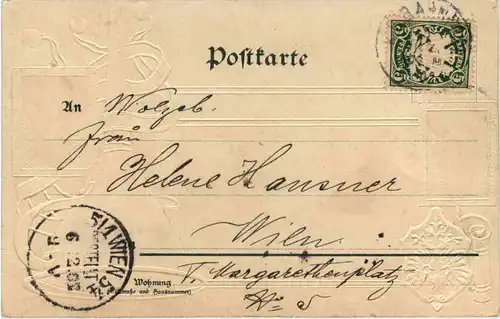 Postkarte
An Wolgeb.
Frau
Helene Hansner
Wien
V. Margarethenplatz
No 5
Wohnung
(Straße und Hausnummer)
5/1 WIEN
BESTELLT